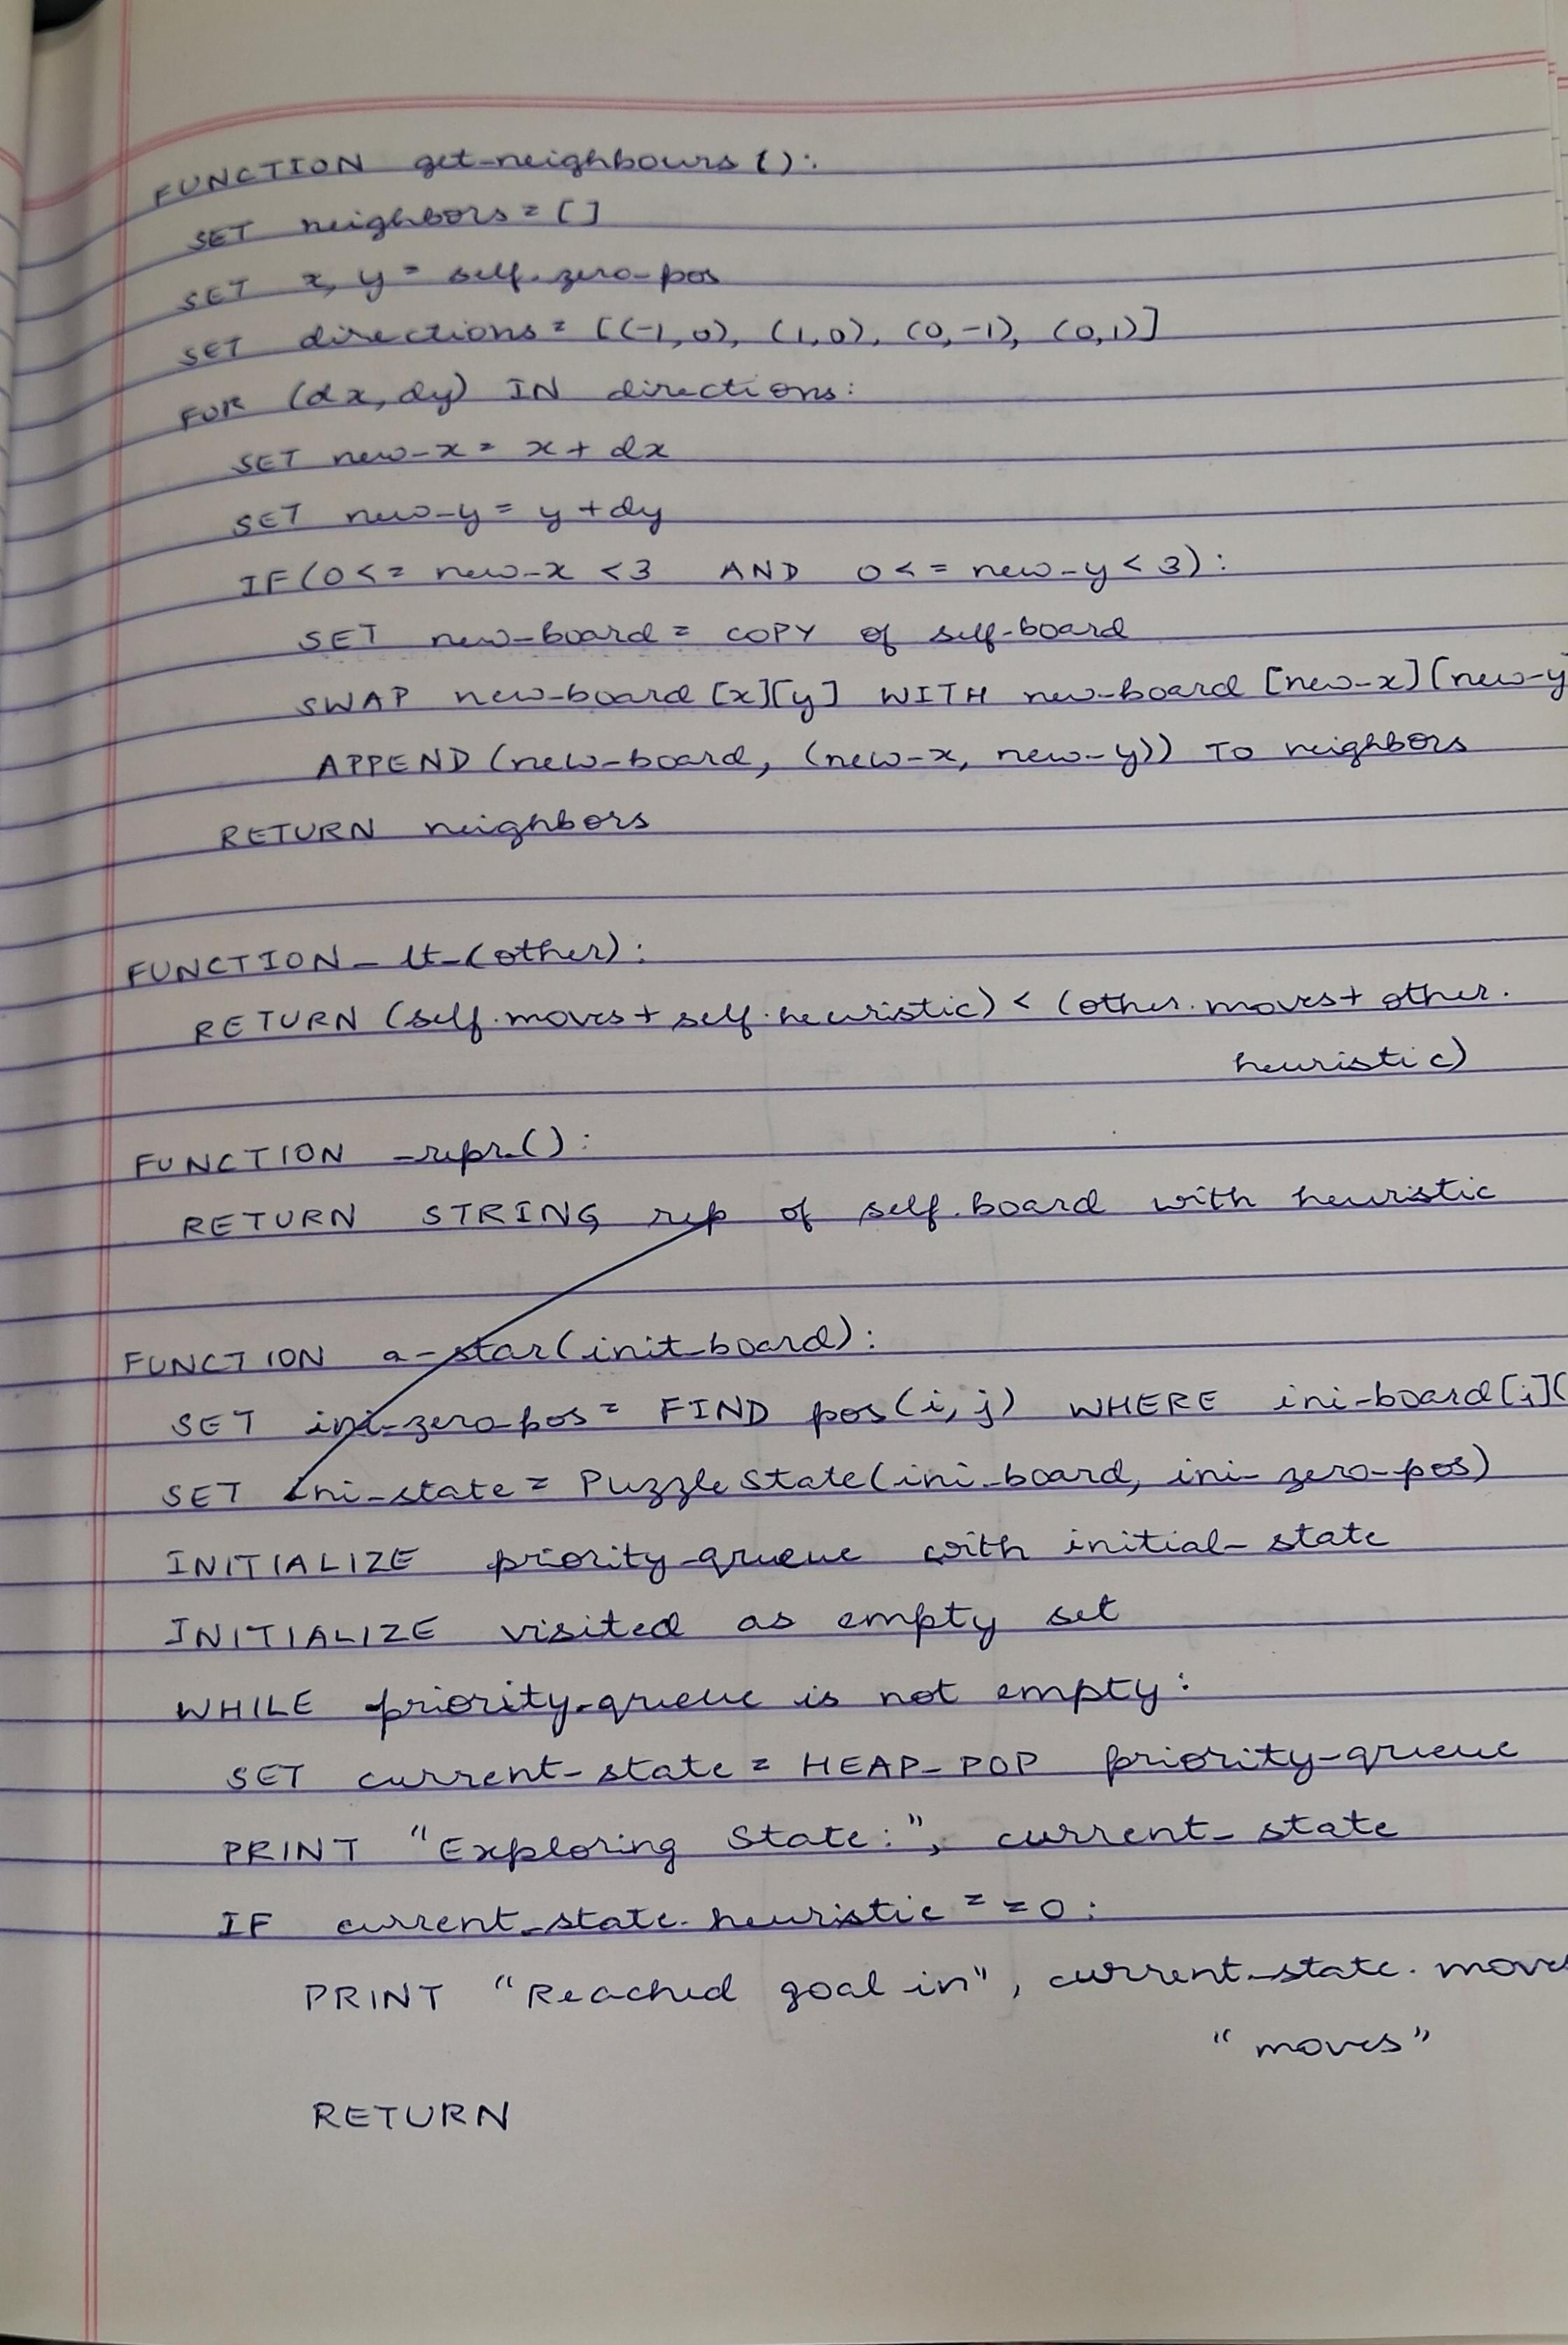 FUNCTION get-neighbours():
SET neighbors = []
SET x, y = self.zero-pos
SET directions = [(-1,0), (1,0), (0,-1), (0,1)]
FOR (dx, dy) IN directions:
SET new-x = x + dx
SET new-y = y + dy
IF(0<= new-x <3 AND 0<= new-y<3):
SET new-board = COPY of self-board
SWAP new-board [x][y] WITH new-board [new-x][new-y]
APPEND (new-board, (new-x, new-y)) TO neighbors
RETURN neighbors
FUNCTION_lt_(other):
RETURN (self.moves + self.heuristic) < (other.moves + other.
heuristic)
FUNCTION _repr_():
RETURN STRING rep of self.board with heuristic
FUNCTION a-star(init_board):
SET ini-zero-pos = FIND pos(i,j) WHERE ini-board[i][
SET ini-state = PuzzleState(ini-board, ini-zero-pos)
INITIALIZE priority-queue with initial-state
INITIALIZE visited as empty set
WHILE priority-queue is not empty:
SET current-state = HEAP_POP priority-queue
PRINT "Exploring State:", current_state
IF current_state.heuristic ==0:
PRINT "Reached goal in", current-state.moves
"moves"
RETURN